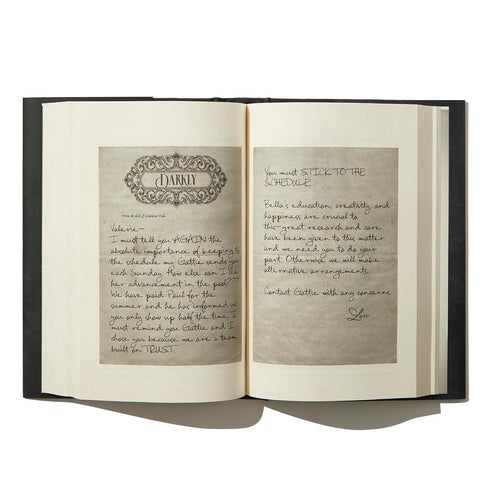 DARKLY
From the desk of
Valerie—
I must tell you AGAIN the
absolute importance of keeping to
the schedule my Gattie sends you
each Sunday. How else can I see
her advancement in the pool???
We have paid Paul for the
summer and he has informed me
you only show up half the time. I
must remind you Gattie and I
chose you because we are a team
built on TRUST.
You must STICK TO THE
SCHEDULE.
Bella's education, creativity and
happiness are crucial to
this—great research and care
have been given to this matter
and we need you to do your
part. Otherwise we will make
alternative arrangements.
Contact Gattie with any concerns.
Lou